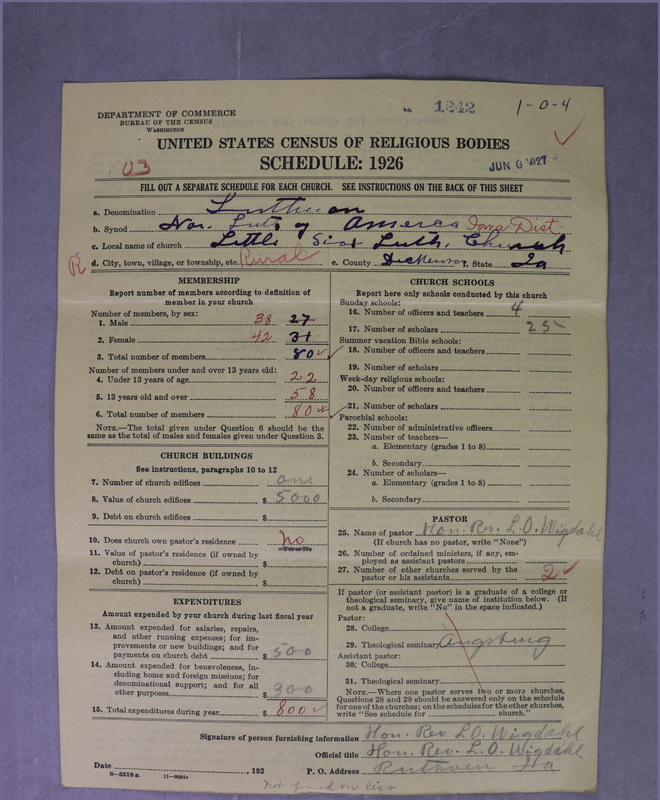 1242
1-0-4
DEPARTMENT OF COMMERCE
BUREAU OF THE CENSUS
WASHINGTON
UNITED STATES CENSUS OF RELIGIOUS BODIES
SCHEDULE: 1926
03
JUN 6 1927
FILL OUT A SEPARATE SCHEDULE FOR EACH CHURCH. SEE INSTRUCTIONS ON THE BACK OF THIS SHEET
a. Denomination Lutheran
b. Synod Nor. Luth of America Iowa Dist.
c. Local name of church Little Siox Luth. Church
R d. City, town, village, or township, etc. Rural e. County Dickenson State Ia
MEMBERSHIP
Report number of members according to definition of
member in your church
Number of members, by sex:
1. Male 38 27
2. Female 42 31
3. Total number of members 80
Number of members under and over 13 years old:
4. Under 13 years of age 22
5. 13 years old and over 58
6. Total number of members 80
NOTE.—The total given under Question 6 should be the
same as the total of males and females given under Question 3.
CHURCH BUILDINGS
See instructions, paragraphs 10 to 12
7. Number of church edifices one
8. Value of church edifices $ 5000
9. Debt on church edifices $
10. Does church own pastor's residence No
Yes or No
11. Value of pastor's residence (if owned by
church) $
12. Debt on pastor's residence (if owned by
church) $
EXPENDITURES
Amount expended by your church during last fiscal year
13. Amount expended for salaries, repairs,
and other running expenses; for im-
provements or new buildings; and for
payments on church debt $ 500
14. Amount expended for benevolences, in-
cluding home and foreign missions; for
denominational support; and for all
other purposes $ 300
15. Total expenditures during year $ 800
CHURCH SCHOOLS
Report here only schools conducted by this church
Sunday schools:
16. Number of officers and teachers 4
17. Number of scholars 25
Summer vacation Bible schools:
18. Number of officers and teachers
19. Number of scholars
Week-day religious schools:
20. Number of officers and teachers
21. Number of scholars
Parochial schools:
22. Number of administrative officers
23. Number of teachers—
a. Elementary (grades 1 to 8)
b. Secondary
24. Number of scholars—
a. Elementary (grades 1 to 8)
b. Secondary
PASTOR
25. Name of pastor Hon. Rev. L. O. Wigdahl
(If church has no pastor, write "None")
26. Number of ordained ministers, if any, em-
ployed as assistant pastors
27. Number of other churches served by the
pastor or his assistants 2
If pastor (or assistant pastor) is a graduate of a college or
theological seminary, give name of institution below. (If
not a graduate, write "No" in the space indicated.)
Pastor:
28. College
29. Theological seminary Augsburg
Assistant pastor:
30. College
31. Theological seminary
NOTE.—Where one pastor serves two or more churches,
Questions 28 and 29 should be answered only on the schedule
for one of the churches; on the schedules for the other churches,
write "See schedule for church."
Signature of person furnishing information Hon. Rev L. O. Wigdahl
Official title Hon. Rev. L. O. Wigdahl
Date , 192 P. O. Address Ruthven Ia
8—5518 a 11—9034
Not found on list